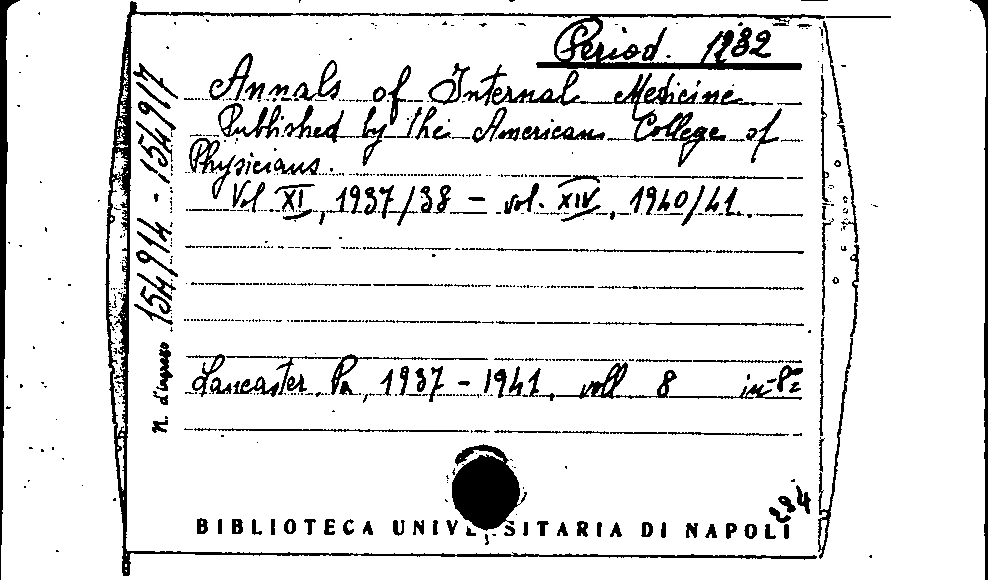 Period. 1232
Annals of Internal Medicine
Published by the American College of
Physicians.
Vol XI, 1937/38 - vol. XIV, 1940/41.
Lancaster, Pa, 1937 - 1941, voll 8 in-8º
N. d'ingresso 154914 - 154917
BIBLIOTECA UNIVERSITARIA DI NAPOLI